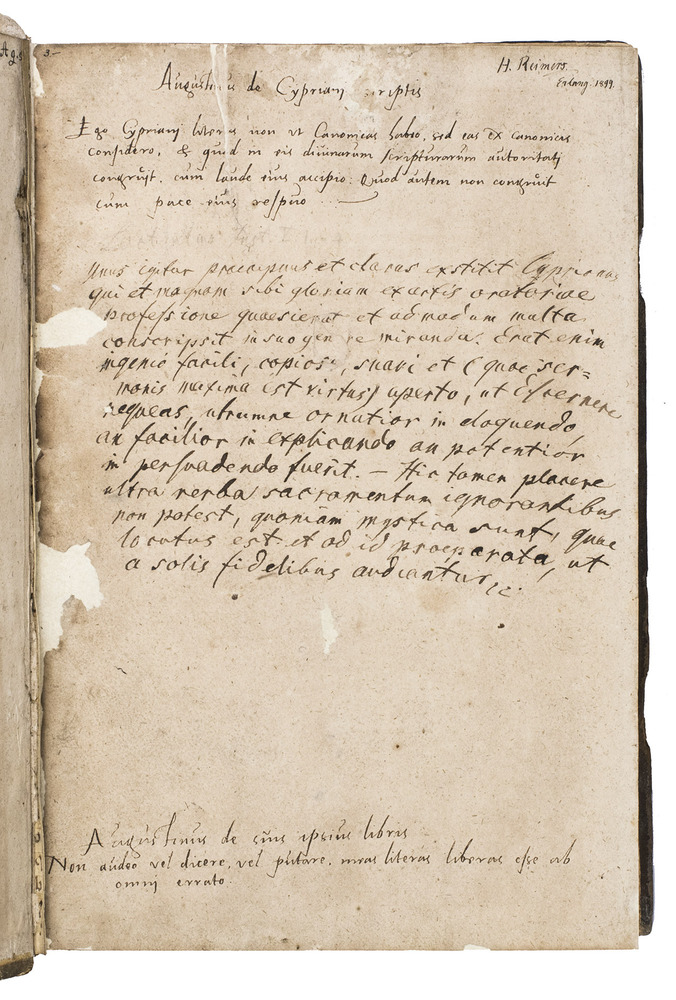 Ag.
3.-
H. Reimers.
Erlang. 1899.
Augustinus de Cypriani scriptis
Ego Cypriani literas non ut Canonicas habeo, sed eas ex canonicis
considero, & quod in eis divinarum scripturarum autoritati
congruit, cum laude eius accipio: Quod autem non congruit
cum pace eius respuo
Unus igitur praecipuus et clarus exstitit Cyprianus
qui et magnam sibi gloriam ex artis oratoriae
professione quaesierat et admodum multa
conscripsit in suo genere miranda. Erat enim
ingenio facili, copioso, suavi et (quae ser=
monis maxima est virtus) aperto, ut discernere
nequeas, utrumne ornatior in eloquendo,
an facilior in explicando an potentior
in persuadendo fuerit. — Hic tamen placere
ultra verba sacramentum ignorantibus
non potest, quoniam mystica sunt, quae
locutus est et ad id praeparata, ut
a solis fidelibus audiantur
Augustinus de eius ipsius libris
Non audeo vel dicere, vel putare, meas literas liberas esse ab
omni errato.